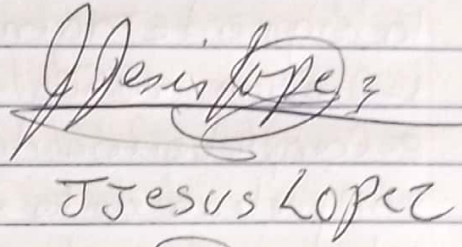 J Jesus Lopez
JJesus Lopez